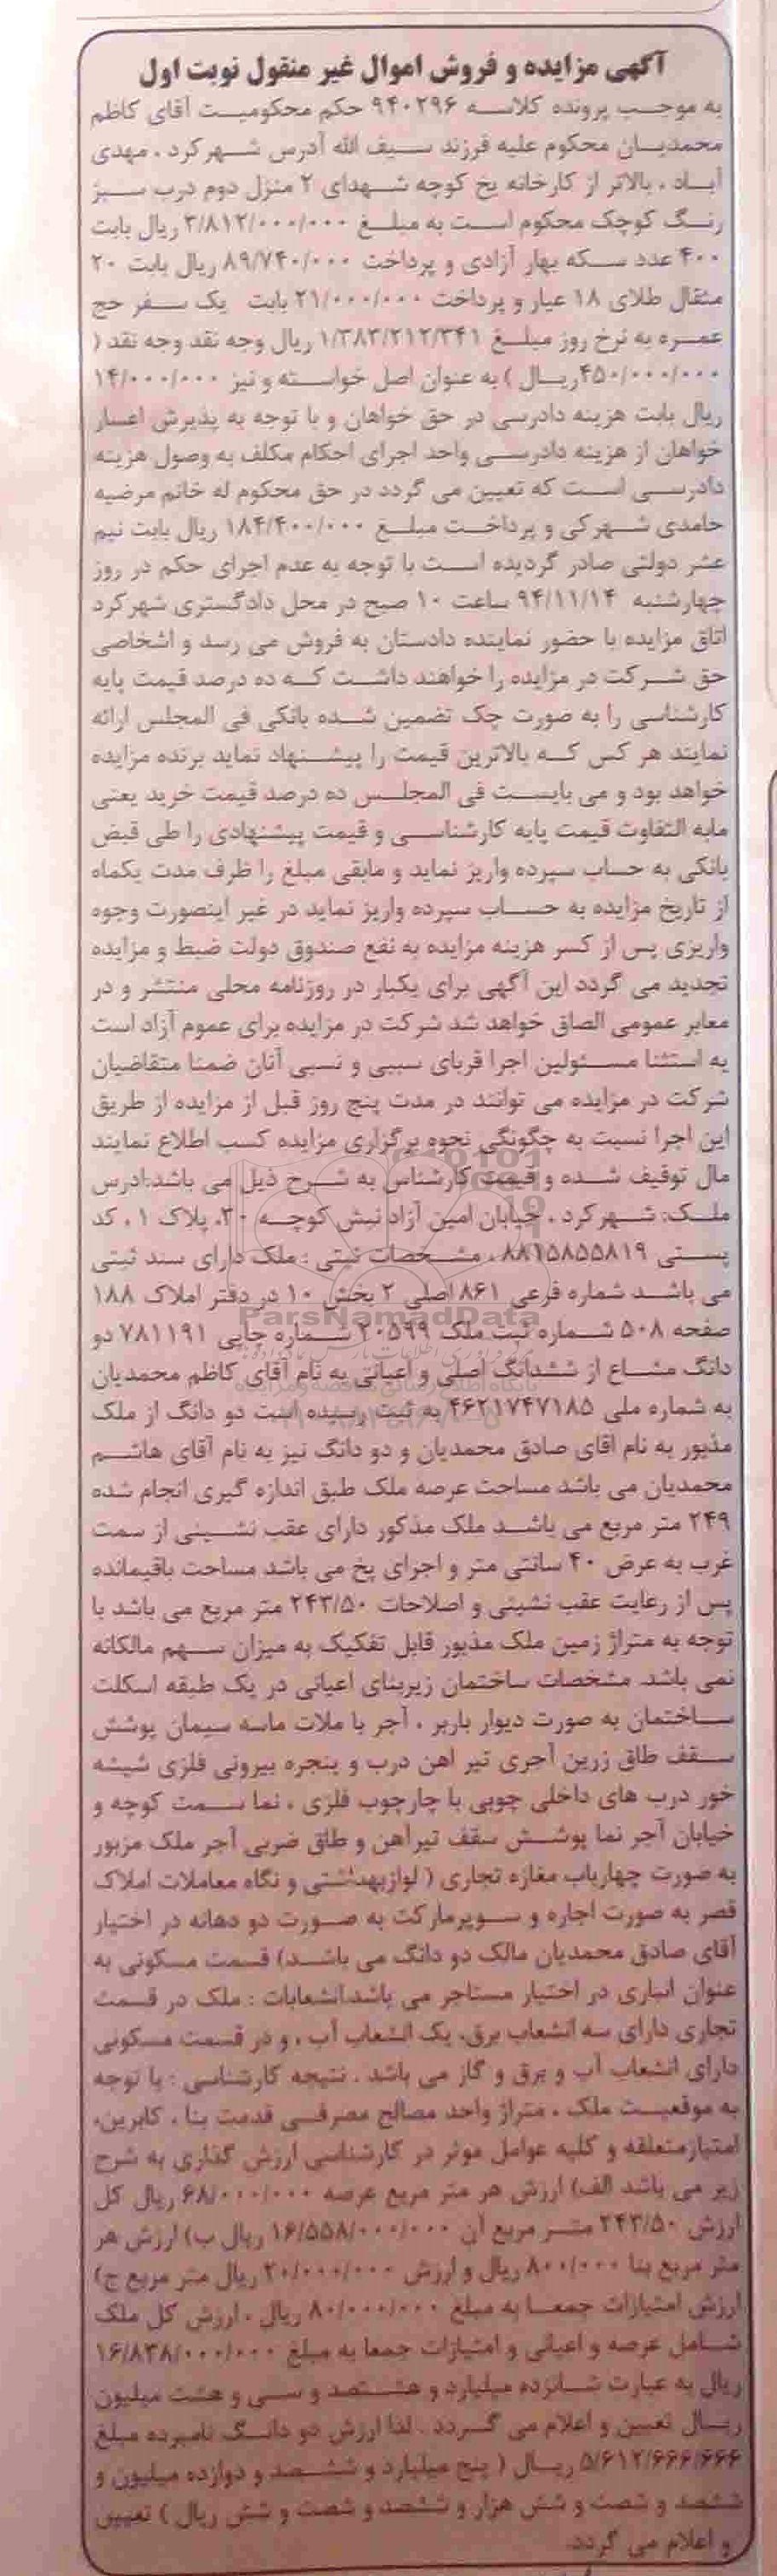 آگهی مزایده و فروش اموال غیر منقول نوبت اول
به موجب پرونده کلاسه ۹۴۰۲۹۶ حکم محکومیت آقای کاظم
محمدیان محکوم علیه فرزند سیف الله آدرس شهرکرد ، مهدی
آباد ، بالاتر از کارخانه یخ کوچه شهدای ۲ منزل دوم درب سبز
رنگ کوچک محکوم است به مبلغ ۳/۸۱۲/۰۰۰/۰۰۰ ریال بابت
۴۰۰ عدد سکه بهار آزادی و پرداخت ۸۹/۷۴۰/۰۰۰ ریال بابت ۲۰
مثقال طلای ۱۸ عیار و پرداخت ۲۱/۰۰۰/۰۰۰ بابت یک سفر حج
عمره به نرخ روز مبلغ ۱/۳۸۳/۲۱۲/۳۴۱ ریال وجه نقد وجه نقد (
۴۵۰/۰۰۰/۰۰۰ریال ) به عنوان اصل خواسته و نیز ۱۴/۰۰۰/۰۰۰
ریال بابت هزینه دادرسی در حق خواهان و با توجه به پذیرش اعسار
خواهان از هزینه دادرسی واحد اجرای احکام مکلف به وصول هزینه
دادرسی است که تعیین می گردد در حق محکوم له خانم مرضیه
حامدی شهرکی و پرداخت مبلغ ۱۸۴/۴۰۰/۰۰۰ ریال بابت نیم
عشر دولتی صادر گردیده است با توجه به عدم اجرای حکم در روز
چهارشنبه ۹۴/۱۱/۱۴ ساعت ۱۰ صبح در محل دادگستری شهرکرد
اتاق مزایده با حضور نماینده دادستان به فروش می رسد و اشخاصی
حق شرکت در مزایده را خواهند داشت که ده درصد قیمت پایه
کارشناسی را به صورت چک تضمین شده بانکی فی المجلس ارائه
نمایند هر کس که بالاترین قیمت را پیشنهاد نماید برنده مزایده
خواهد بود و می بایست فی المجلس ده درصد قیمت خرید یعنی
مابه التفاوت قیمت پایه کارشناسی و قیمت پیشنهادی را طی قبض
بانکی به حساب سپرده واریز نماید و مابقی مبلغ را ظرف مدت یکماه
از تاریخ مزایده به حساب سپرده واریز نماید در غیر اینصورت وجوه
واریزی پس از کسر هزینه مزایده به نفع صندوق دولت ضبط و مزایده
تجدید می گردد این آگهی برای یکبار در روزنامه محلی منتشر و در
معابر عمومی الصاق خواهد شد شرکت در مزایده برای عموم آزاد است
به استثنا مسئولین اجرا قربای سببی و نسبی آنان ضمنا متقاضیان
شرکت در مزایده می توانند در مدت پنج روز قبل از مزایده از طریق
این اجرا نسبت به چگونگی نحوه برگزاری مزایده کسب اطلاع نمایند
مال توقیف شده و قیمت کارشناس به شرح ذیل می باشد:ادرس
ملک: شهرکرد ، خیابان امین آزاد نبش کوچه ۳۰، پلاک ۱ ، کد
پستی ۸۸۱۵۸۵۵۸۱۹ ، مشخصات ثبتی : ملک دارای سند ثبتی
می باشد شماره فرعی ۸۶۱ اصلی ۲ بخش ۱۰ در دفتر املاک ۱۸۸
ParsNamadData
صفحه ۵۰۸ شماره ثبت ملک ۲۰۵۹۹ شماره چاپی ۷۸۱۱۹۱ دو
دانگ مشاع از ششدانگ اصلی و اعیانی به نام آقای کاظم محمدیان
به شماره ملی ۴۶۲۱۷۴۷۱۸۵ به ثبت رسیده است دو دانگ از ملک
مذبور به نام اقای صادق محمدیان و دو دانگ نیز به نام آقای هاشم
محمدیان می باشد مساحت عرصه ملک طبق اندازه گیری انجام شده
۲۴۹ متر مربع می باشد ملک مذکور دارای عقب نشینی از سمت
غرب به عرض ۴۰ سانتی متر و اجرای پخ می باشد مساحت باقیمانده
پس از رعایت عقب نشینی و اصلاحات ۲۴۳/۵۰ متر مربع می باشد با
توجه به متراژ زمین ملک مذبور قابل تفکیک به میزان سهم مالکانه
نمی باشد. مشخصات ساختمان زیربنای اعیانی در یک طبقه اسکلت
ساختمان به صورت دیوار باربر ، آجر با ملات ماسه سیمان پوشش
سقف طاق زرین آجری تیر اهن درب و پنجره بیرونی فلزی شیشه
خور درب های داخلی چوبی با چارچوب فلزی ، نما سمت کوچه و
خیابان آجر نما پوشش سقف تیرآهن و طاق ضربی آجر ملک مزبور
به صورت چهارباب مغازه تجاری ( لوازبهداشتی و نگاه معاملات املاک
قصر به صورت اجاره و سوپرمارکت به صورت دو دهانه در اختیار
آقای صادق محمدیان مالک دو دانگ می باشد) قسمت مسکونی به
عنوان انباری در اختیار مستاجر می باشد.انشعابات : ملک در قسمت
تجاری دارای سه انشعاب برق، یک انشعاب آب ، و در قسمت مسکونی
دارای انشعاب آب و برق و گاز می باشد . نتیجه کارشناسی : با توجه
به موقعیت ملک ، متراژ واحد مصالح مصرفی قدمت بنا ، کابرین،
امتیازمتعلقه و کلیه عوامل موثر در کارشناسی ارزش گذاری به شرح
زیر می باشد الف) ارزش هر متر مربع عرصه ۶۸/۰۰۰/۰۰۰ ریال کل
ارزش ۲۴۳/۵۰ متر مربع آن ۱۶/۵۵۸/۰۰۰/۰۰۰ ریال ب) ارزش هر
متر مربع بنا ۸۰۰/۰۰۰ ریال و ارزش ۲۰/۰۰۰/۰۰۰ ریال متر مربع ج)
ارزش امتیازات جمعا به مبلغ ۸۰/۰۰۰/۰۰۰ ریال ، ارزش کل ملک
شامل عرصه و اعیانی و امتیازات جمعا به مبلغ ۱۶/۸۳۸/۰۰۰/۰۰۰
ریال به عبارت شانزده میلیارد و هشتصد و سی و هشت میلیون
ریال تعیین و اعلام می گردد . لذا ارزش دو دانگ نامبرده مبلغ
۵/۶۱۲/۶۶۶/۶۶۶ ریال ( پنج میلیارد و ششصد و دوازده میلیون و
ششصد و شصت و شش هزار و ششصد و شصت و شش ریال ) تعیین
و اعلام می گردد.